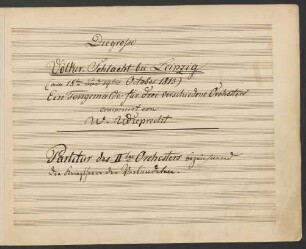 Die große
Völker Schlacht bei Leipzig
(am 18ten und 19ten October 1813)
Ein Tongemälde für drei verschiedene Orchester
componirt von
W. Wieprecht
Partitur des IIten Orchesters bezeichnend
die Kriegsheere der Verbündeten.